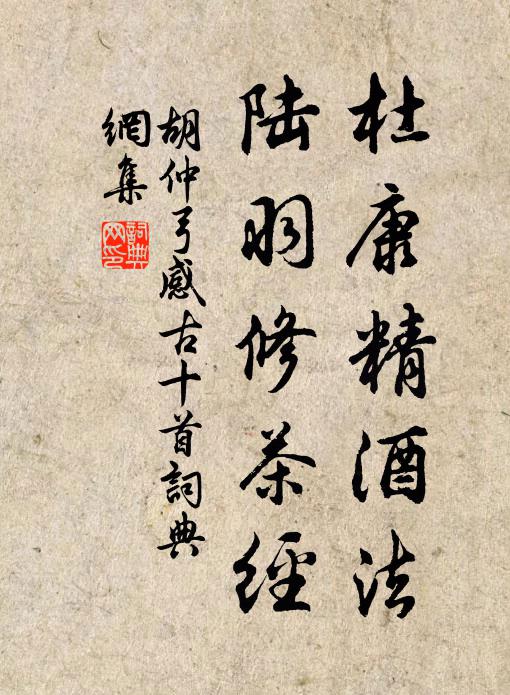 杜康精酒法
陆羽修茶經
胡仲弓感古十首詞典
網集
詞典
网印